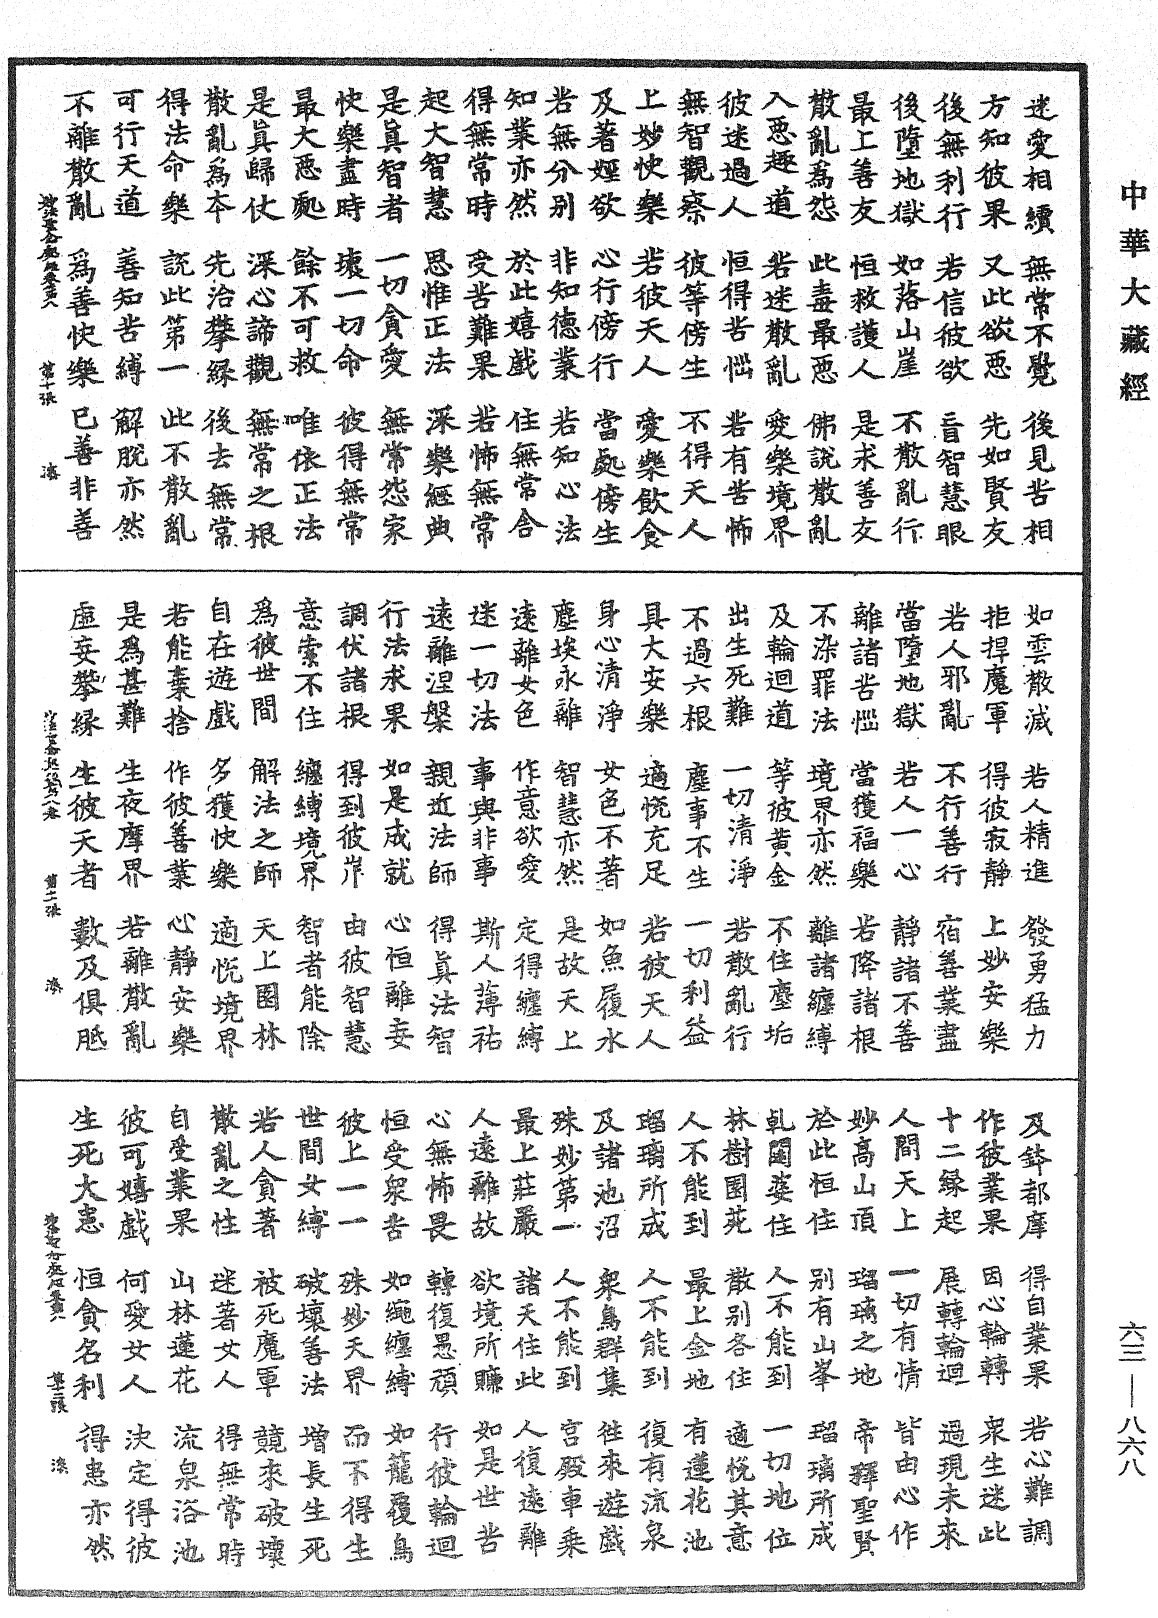 中華大藏經
迷愛相續 無常不覺 後見苦相
方知彼果 又此欲惡 先如賢友
後無利行 若信彼欲 盲智慧眼
後墮地獄 如落山崖 不散亂行
最上善友 恒救護人 是求善友
散亂爲怨 此毒最惡 佛說散亂
入惡趣道 若迷散亂 愛樂境界
彼迷過人 恒得苦惱 若有苦怖
無智觀察 彼等傍生 不得天人
上妙快樂 若彼天人 愛樂飲食
及著婬欲 心行傍行 當處傍生
若無分別 非知德業 若知心法
知業亦然 於此嬉戲 住無常舍
得無常時 受苦難果 若怖無常
起大智慧 思惟正法 深樂經典
是眞智者 一切貪愛 無常怨家
快樂盡時 壞一切命 彼得無常
最大惡處 餘不可救 唯依正法
是眞歸仗 深心諦觀 無常之根
散亂爲本 先治攀緣 後去無常
得法命樂 說此第一 此不散亂
可行天道 善知苦縛 解脫亦然
不離散亂 爲善快樂 已善非善
第十張
如雲散滅 若人精進 發勇猛力
拒捍魔軍 得彼寂靜 上妙安樂
若人邪亂 不行善行 宿善業盡
當墮地獄 若人一心 靜諸不善
離諸苦惱 當獲福樂 若降諸根
不染罪法 境界亦然 離諸纏縛
及輪迴道 等彼黃金 不住塵垢
出生死難 一切清淨 若散亂行
不過六根 塵事不生 一切利益
具大安樂 適悅充足 若彼天人
身心清淨 女色不著 如魚履水
塵埃永離 智慧亦然 是故天上
遠離女色 作意欲愛 定得纏縛
迷一切法 事與非事 斯人薄祐
遠離涅槃 親近法師 得眞法智
行法求果 如是成就 心恒離妄
調伏諸根 得到彼岸 由彼智慧
意索不住 纏縛境界 智者能除
爲彼世間 解法之師 天上園林
自在遊戲 多獲快樂 適悅境界
若能棄捨 作彼善業 心靜安樂
是爲甚難 生夜摩界 若離散亂
虛妄攀緣 生彼天者 數及俱胝
第十一張
及鉢都摩 得自業果 若心難調
作彼業果 因心輪轉 衆生迷此
十二緣起 展轉輪迴 過現未來
人間天上 一切有情 皆由心作
妙高山頂 瑠璃之地 帝釋聖賢
於此恒住 別有山峯 瑠璃所成
乹闥婆住 人不能到 一切地位
林樹園苑 散別各住 適悅其意
人不能到 最上金地 有蓮花池
瑠璃所成 人不能到 復有流泉
及諸池沼 衆鳥群集 徃來遊戲
殊妙第一 人不能到 宮殿車乘
最上莊嚴 諸天住此 人復遠離
人遠離故 欲境所賺 如是世苦
心無怖畏 轉復愚頑 行彼輪迴
恒受衆苦 如繩纏縛 如籠覆鳥
彼上一一 殊妙天界 而不得生
世間女縛 破壞善法 增長生死
若人貪著 被死魔軍 競來破壞
散亂之性 迷著女人 得無常時
自受業果 山林蓮花 流泉浴池
彼可嬉戲 何愛女人 決定得彼
生死大患 恒貪名利 得患亦然
第十二張
六三—八六八